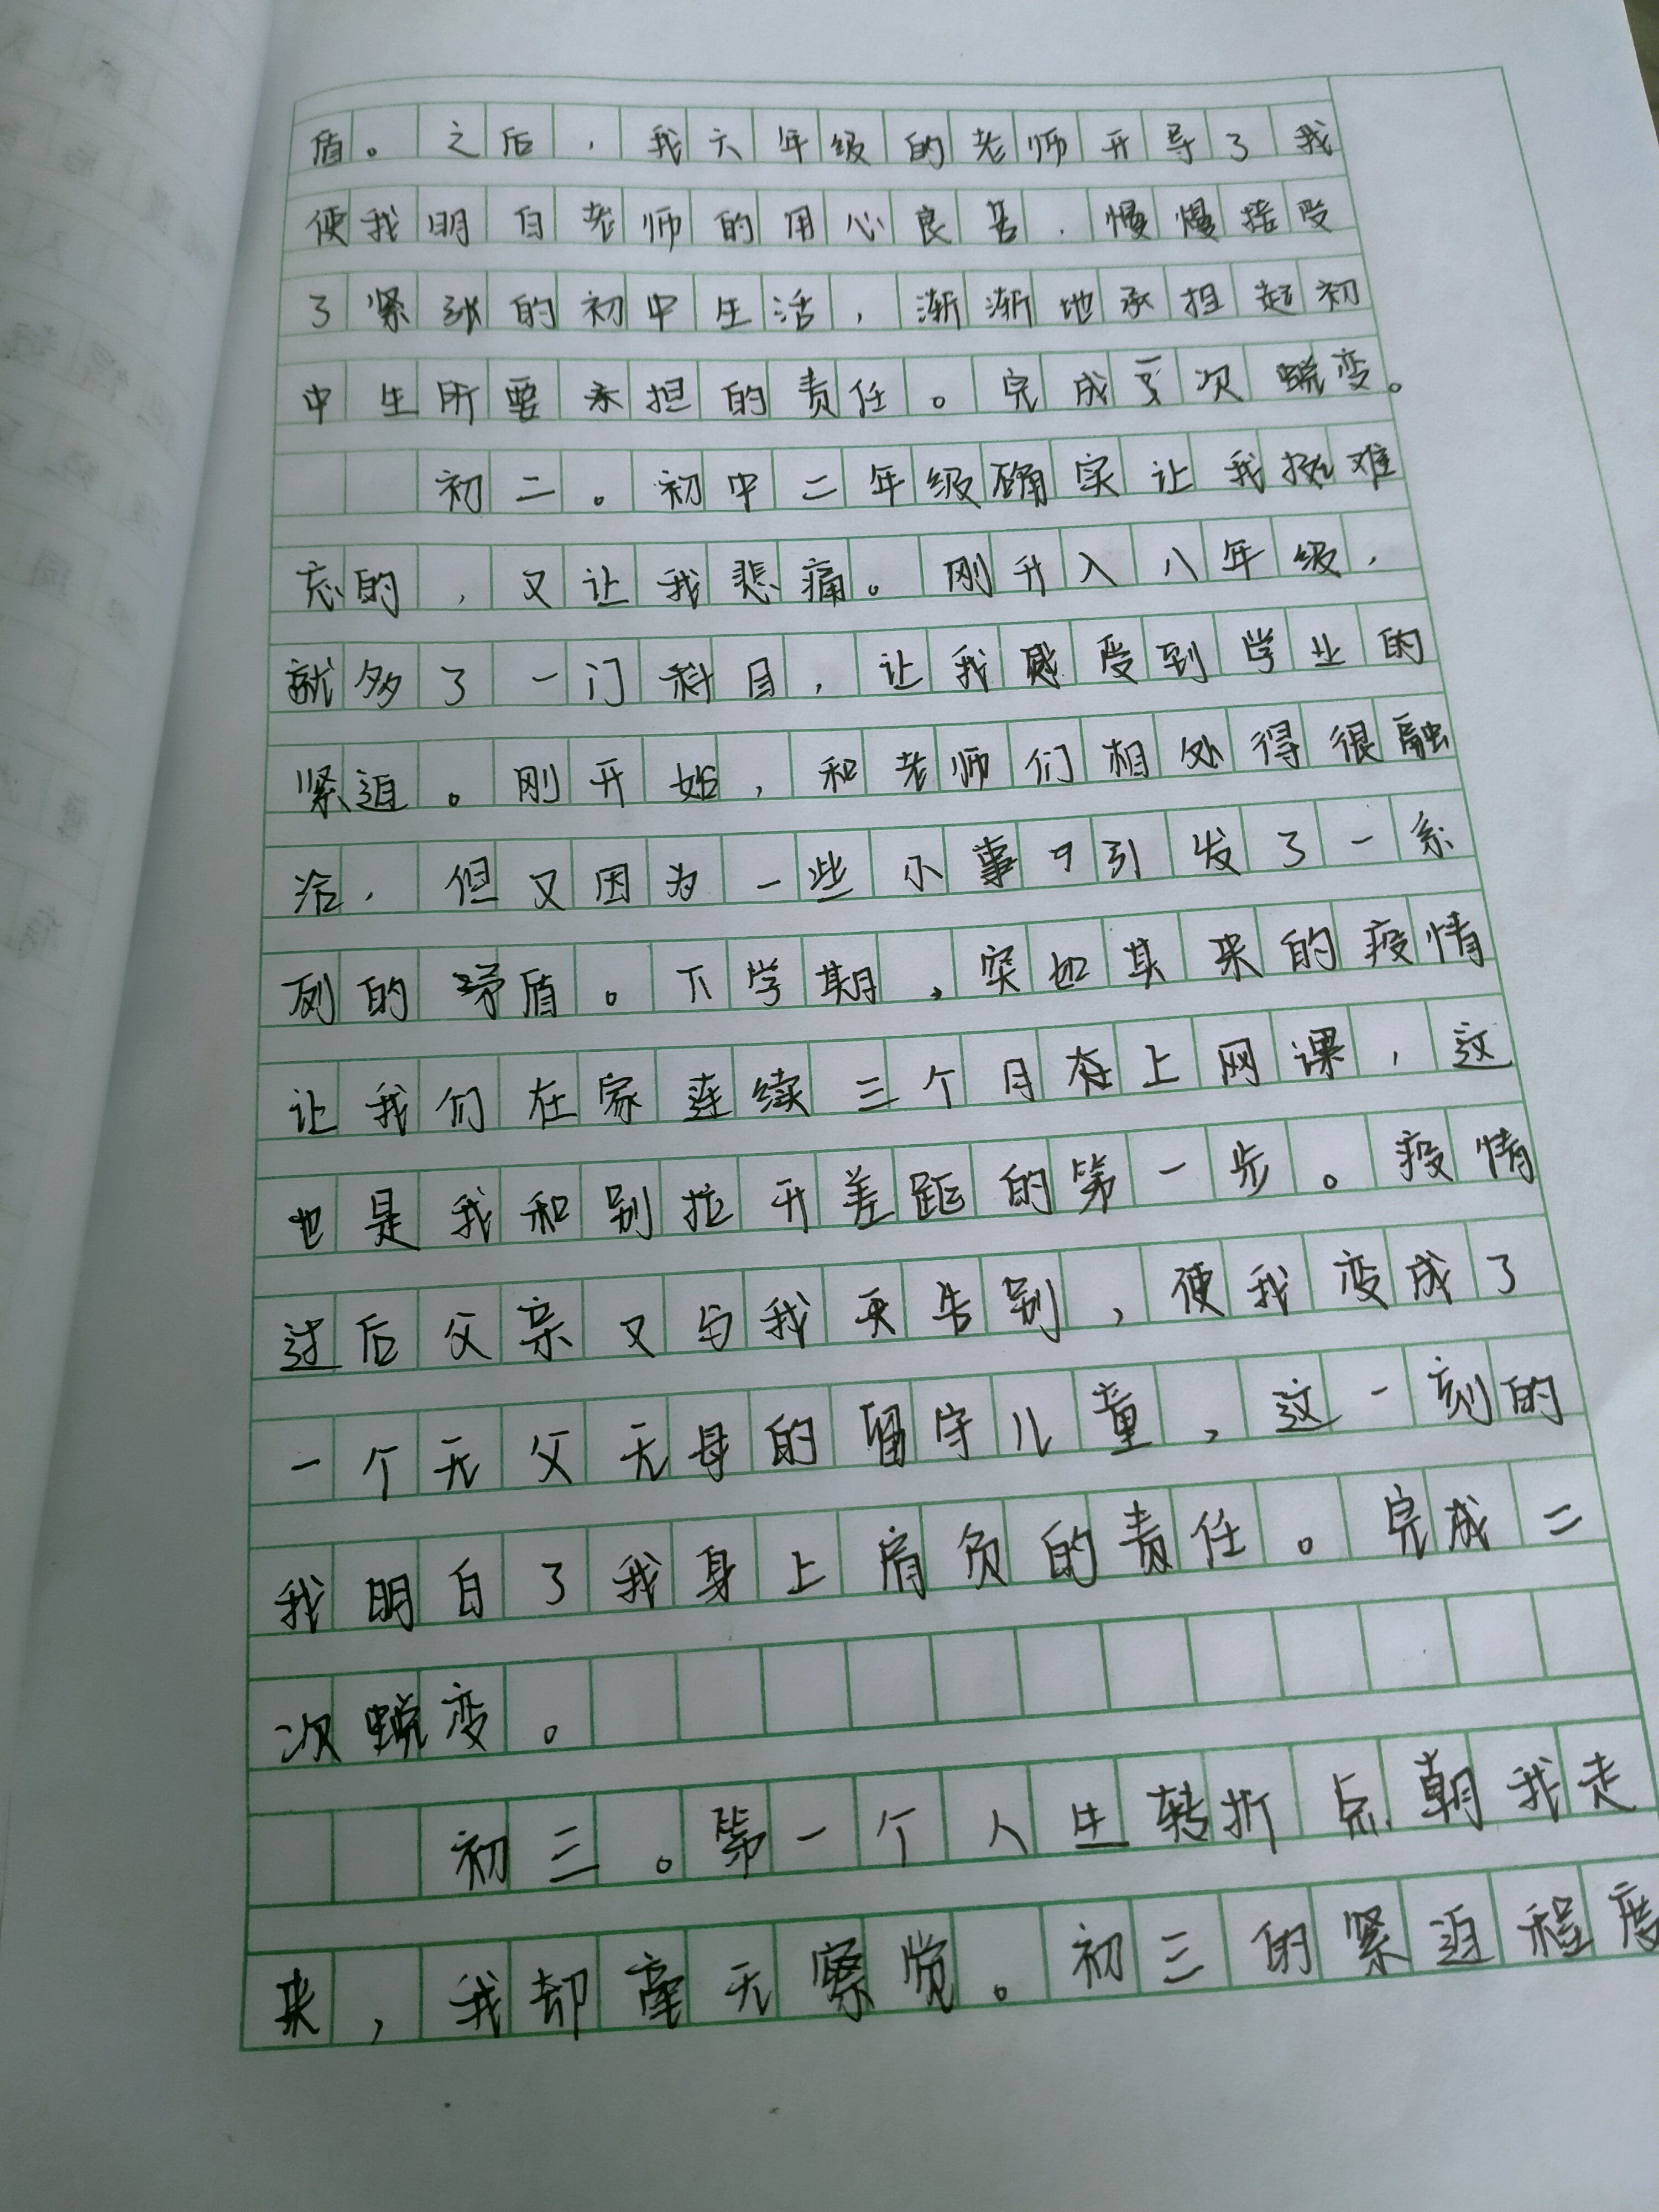 盾。之后，我六年级的老师开导了我
使我明白老师的用心良苦，慢慢接受
了紧张的初中生活，渐渐地承担起初
中生所要承担的责任。完成一次蜕变。
初二。初中二年级确实让我挺难
忘的，又让我悲痛。刚升入八年级，
就多了一门科目，让我感受到学业的
紧迫。刚开始，和老师们相处得很融
洽，但又因为一些小事引发了一系
列的矛盾。下学期，突如其来的疫情
让我们在家连续三个月在上网课，这
也是我和别拉开差距的第一步。疫情
过后父亲又与我天告别，使我变成了
一个无父无母的留守儿童，这一刻的
我明白了我身上肩负的责任。完成二
次蜕变。
初三。第一个人生转折点朝我走
来，我却毫无察觉。初三的紧迫程度